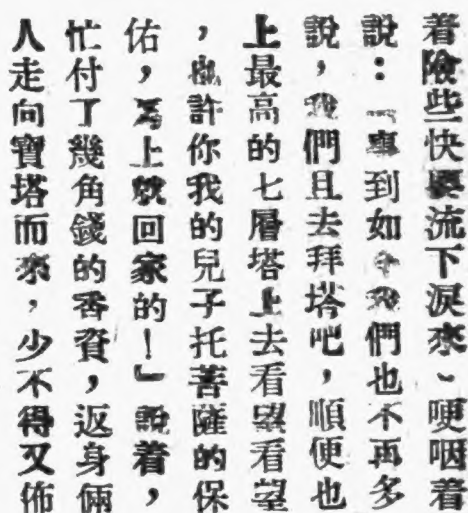 着險些快要流下淚來、哽咽着
說：「事到如今我們也不再多
說，我們且去拜塔吧，順便也
上最高的七層塔上去看望看望
，也許你我的兒子托菩薩的保
佑，馬上就回家的！」說着，
忙付了幾角錢的香資，返身倆
人走向寶塔而來，少不得又佈